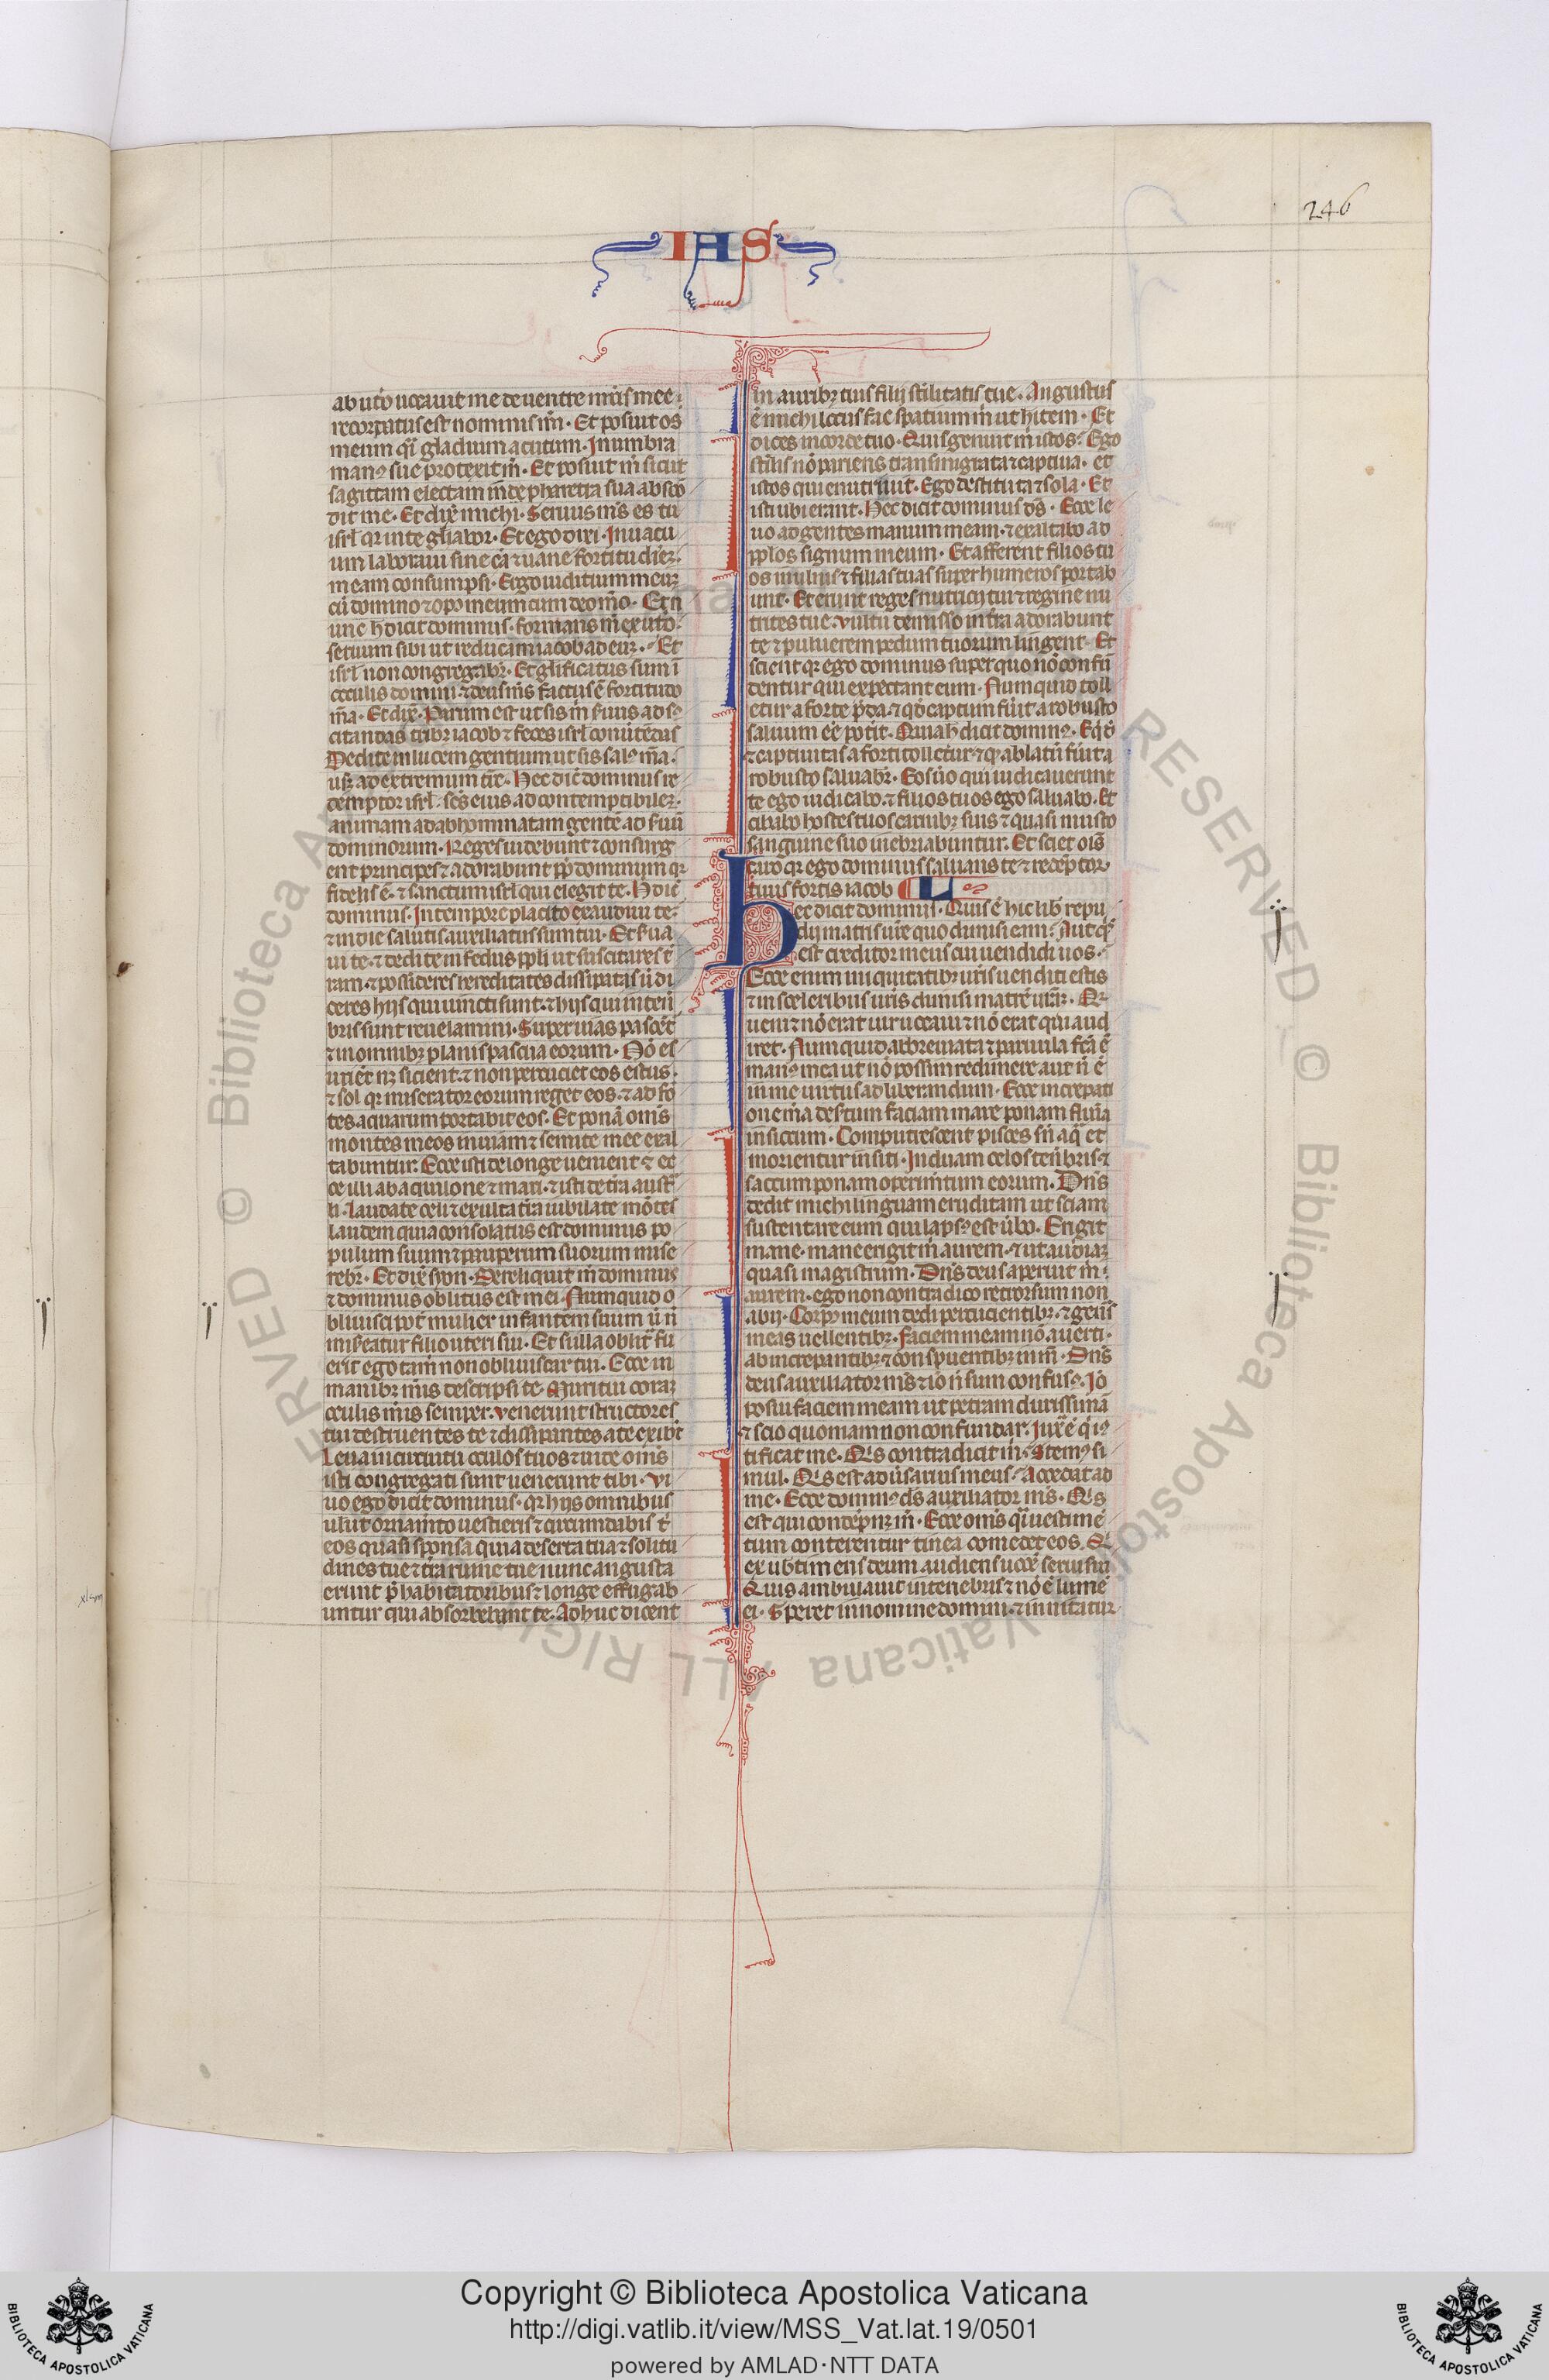 246
IAS
ab uto uocauit me de uentre mris mee
recordatus est nominis mi. Et posuit os
meum qi gladium acutum. In umbra
man9 sue protexit m. Et posuit m sicut
sagittam electam in de pharetra sua absco
dit me. Et dix michi. Seruus ms es tu
isrl qr in te gliabor. Et ego dixi. In uacu
um laboraui sine ca ⁊ uane fortitudiez
meam consumpsi. Ergo iuditium meuz
cu domino ⁊ op9 meum cum deo mo. Et n
unc h dicit dominus. formans m ex uto
seruum sibi ut reducam iacob ad euz. Et
isrl non congregabr. Et glificatus sum i
occulis domini ⁊ deus ms factus e fortitudo
ma. Et dix. Parum est ut sis m suus ad s
citandas tribz iacob ⁊ feces isrl conuertedas
Dedi te in lucem gentium ut sis sal9 ma
usqz ad extremum tre. Hec dic dominus re
demptor isrl. scs eius ad contemptibilez
animam ad abhominatam gente ad suu
dominorum. Reges uidebunt ⁊ consurg
ent principes ⁊ adorabunt pp dominum qr
fidelis e. ⁊ sanctum isrl qui elegit te. H dic
dominus. In tempore placito exaudiui te
⁊ in die salutis auxiliatus sum tui. Et sua
ui te. ⁊ dedi te in fedus ppli ut suscitares t
ram. ⁊ possideres hereditates dissipatas u di
ceres hijs qui uincti sunt. ⁊ hijs qui in ten
bris sunt reuelamini. Super uias pascet
⁊ in omnibz planis pascua eorum. No es
uriet nz sicient. ⁊ non percuciet eos estus
⁊ sol qr miserator eorum reget eos. ⁊ ad fo
tes aquarum portabit eos. Et pona omis
montes meos in uiam ⁊ semite mee exal
tabuntur. Ecce isti de longe uenient ⁊ ec
ce illi ab aquilone ⁊ mari. ⁊ isti de tra aust
li. Laudate celi ⁊ exulta tra iubilate motes
laudem quia consolatus est dominus po
pulum suum ⁊ pauperum suorum mise
rebr. Et dix syon. Dereliquit m dominus
⁊ dominus oblitus est mei. Numquid o
bliuisci pot mulier infantem suum u n
misreatur filio uteri sui. Et si illa oblit fu
erit ego tam non obliuiscar tui. Ecce in
manibz mis descripsi te. Muri tui coraz
oculis mis semper. Venerunt structores
tui destruentes te ⁊ dissipantes a te exibt
Leua in circuitu oculos tuos ⁊ uide omis
isti congregati sunt uenerunt tibi. Vi
uo ego dicit dominus. qr hijs omnibus
ulut ornamto uestieris ⁊ circumdabis t
eos quasi sponsa quia deserta tua ⁊ solitu
dines tue ⁊ tra ruine tue nunc angusta
erunt p habitatoribus ⁊ longe effugab
untur qui absorbebant te. Adhuc dicent
in auribz tuis filij sterilitatis tue. Angustus
e michi locus fac spatium m ut hitem. Et
dices in corde tuo. Quis genuit m istos. Ego
stilis no pariens transmigrata ⁊ captiua. et
istos qui enutriuit. Ego destituta ⁊ sola. Et
isti ubi erant. Hec dicit dominus ds. Ecce le
uo ad gentes manum meam. ⁊ exaltabo ad
pplos signum meum. Et afferent filios tu
os in ulnis ⁊ filias tuas super humeros portab
unt. Et erunt reges nutricij tui ⁊ regine nu
trices tue. Vultu demisso in tra adorabunt
te ⁊ puluerem pedum tuorum lingent. Et
scient qr ego dominus super quo no confu
dentur qui expectant eum. Numquid toll
etur a forte pda. ⁊ qd captum fuit a robusto
saluum ee potit. Quia h dicit domin9. Eqd
⁊ captiuitas a forti tolletur ⁊ qd ablatu fuit a
robusto saluabr. Eos uo qui iudicauerunt
te ego iudicabo. ⁊ filios tuos ego saluabo. Et
cibabo hostes tuos carnibz suis ⁊ quasi musto
sanguine suo inebriabuntur. Et sciet ois
caro qr ego dominus saluans te ⁊ redeptor
tuus fortis iacob L
Hec dicit dominus. Quis e hic lib repu
dij matris ure quo dimisi eam. Aut q
est creditor meus cui uendidi uos.
Ecce enim iniquitatibz uris uenditi estis
⁊ in sceleribus uris dimisi matre uraz. Qr
ueni ⁊ no erat uir uocaui ⁊ no erat qui aud
iret. Numquid abbreuiata ⁊ paruula fca e
man9 mea ut no possim redimere aut n e
in me uirtus ad liberandum. Ecce increpati
one mea desertum faciam mare ponam flumina
in siccum. Computrescent pisces sn aq et
morientur in siti. Induam celos tenbris ⁊
saccum ponam operimtum eorum. Dns
dedit michi linguam eruditam ut sciam
sustentare eum qui laps9 est ubo. Erigit
mane. mane erigit m aurem. ⁊ ut audiaz
quasi magistrum. Dns deus aperuit m
aurem. ego non contradico retrorsum non
abij. Corp9 meum dedi percucientibz. ⁊ genas
meas uellentibz. faciem meam no auerti
ab increpantibz ⁊ conspuentibz in m. Dns
deus auxiliator ms ⁊ io n sum confus9. Io
posui faciem meam ut petram durissima
⁊ scio quoniam non confundar. Iux e q ius
tificat me. Qis contradicit m. Stem9 si
mul. Qis est aduersarius meus. Accedat ad
me. Ecce domin9 ds auxiliator ms. Qis
est qui condepnz m. Ecce omis qi uestime
tum conterentur tinea comedet eos. Q
ex ub timens deum audiens uoce serui sui
Quis ambulauit in tenebris ⁊ no e lume
ei. Speret in nomine domini. ⁊ innitatur
Copyright © Biblioteca Apostolica Vaticana
http://digi.vatlib.it/view/MSS_Vat.lat.19/0501
powered by AMLAD·NTT DATA
BIBLIOTECA APOSTOLICA VATICANA
BIBLIOTECA APOSTOLICA VATICANA